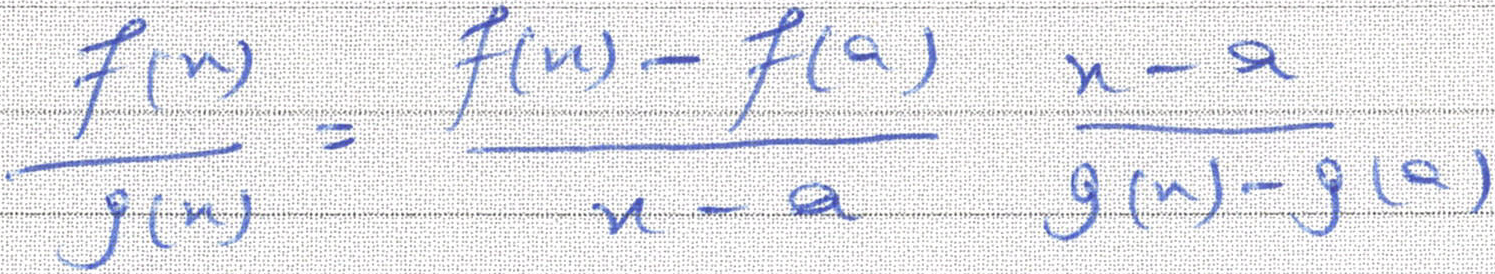 f(x)/g(x) = (f(x) - f(a))/(x - a) (x - a)/(g(x) - g(a))